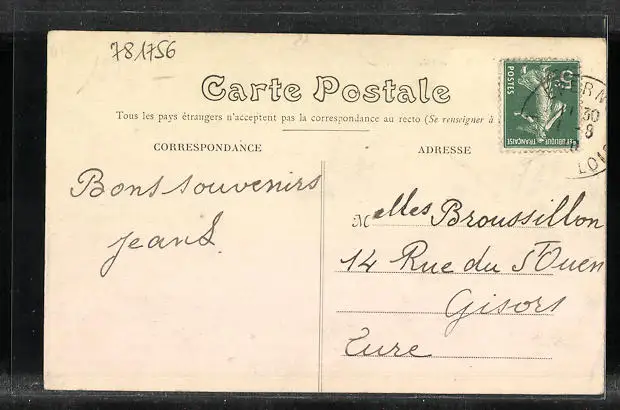 781756
Carte Postale
Tous les pays étrangers n'acceptent pas la correspondance au recto (Se renseigner à
CORRESPONDANCE
ADRESSE
5c
POSTES
REPUBLIQUE FRANÇAISE
30
8
LOI
Bons souvenirs
JeanS.
Melles Broussillon
14 Rue du St Ouen
Gisors
Eure